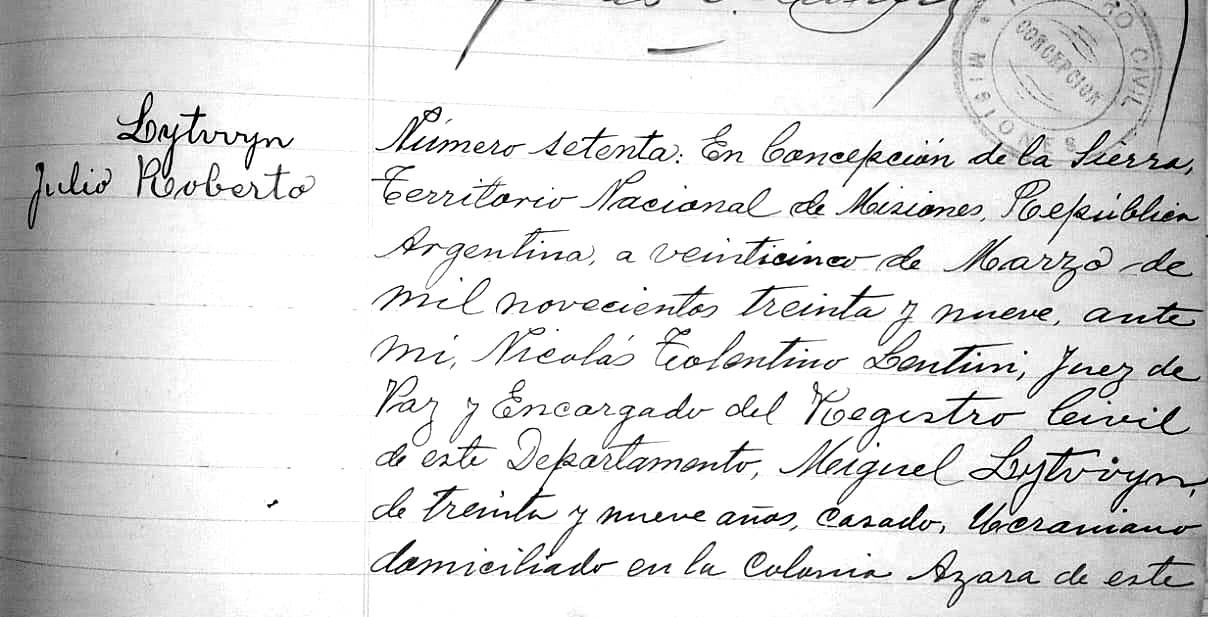 REGISTRO CIVIL
CONCEPCION
MISIONES
Lytvvyn
Julio Roberto
Número setenta: En Concepción de la Sierra,
Territorio Nacional de Misiones, República
Argentina, a veinticinco de Marzo de
mil novecientos treinta y nueve, ante
mi, Nicolás Tolentino Lentini, Juez de
Paz y Encargado del Registro Civil
de este Departamento, Meiguel Lytvvyn,
de treinta y nueve años, casado, Ucraniano
domiciliado en la Colonia Azara de este